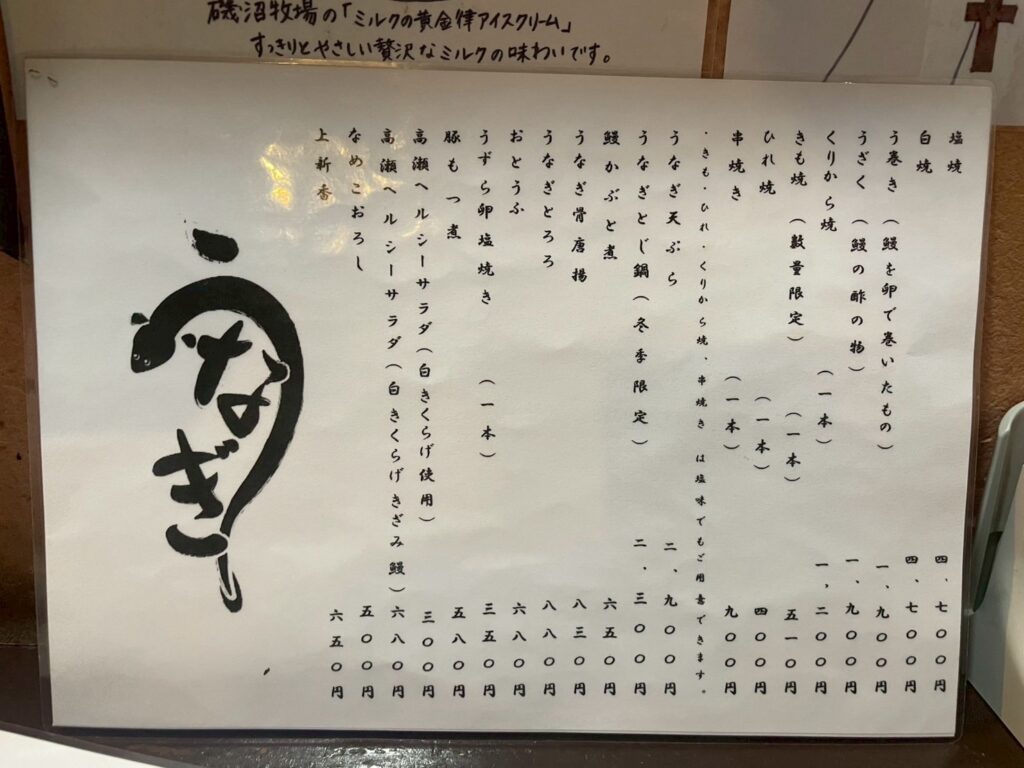 磯沼牧場の「ミルクの黄金律アイスクリーム」
すっきりとやさしい贅沢なミルクの味わいです。
塩焼 四、七〇〇円
白焼 四、七〇〇円
う巻き（鰻を卵で巻いたもの） 一、九〇〇円
うざく（鰻の酢の物） 一、九〇〇円
くりから焼 （一本） 一、二〇〇円
きも焼（数量限定） （一本） 五一〇円
ひれ焼 （一本） 四〇〇円
串焼き （一本） 九〇〇円
・きも・ひれ・くりから焼・串焼き は塩味でもご用意できます。
うなぎ天ぷら 二、九〇〇円
うなぎとじ鍋（冬季限定） 二、三〇〇円
鰻かぶと煮 六五〇円
うなぎ骨唐揚 八三〇円
うなぎとろろ 八八〇円
おとうふ 六八〇円
うずら卵塩焼き （一本） 三五〇円
豚もつ煮 五八〇円
高瀬ヘルシーサラダ（白きくらげ使用） 三〇〇円
高瀬ヘルシーサラダ（白きくらげきざみ鰻） 六八〇円
なめこおろし 五〇〇円
上新香 六五〇円
うなぎ